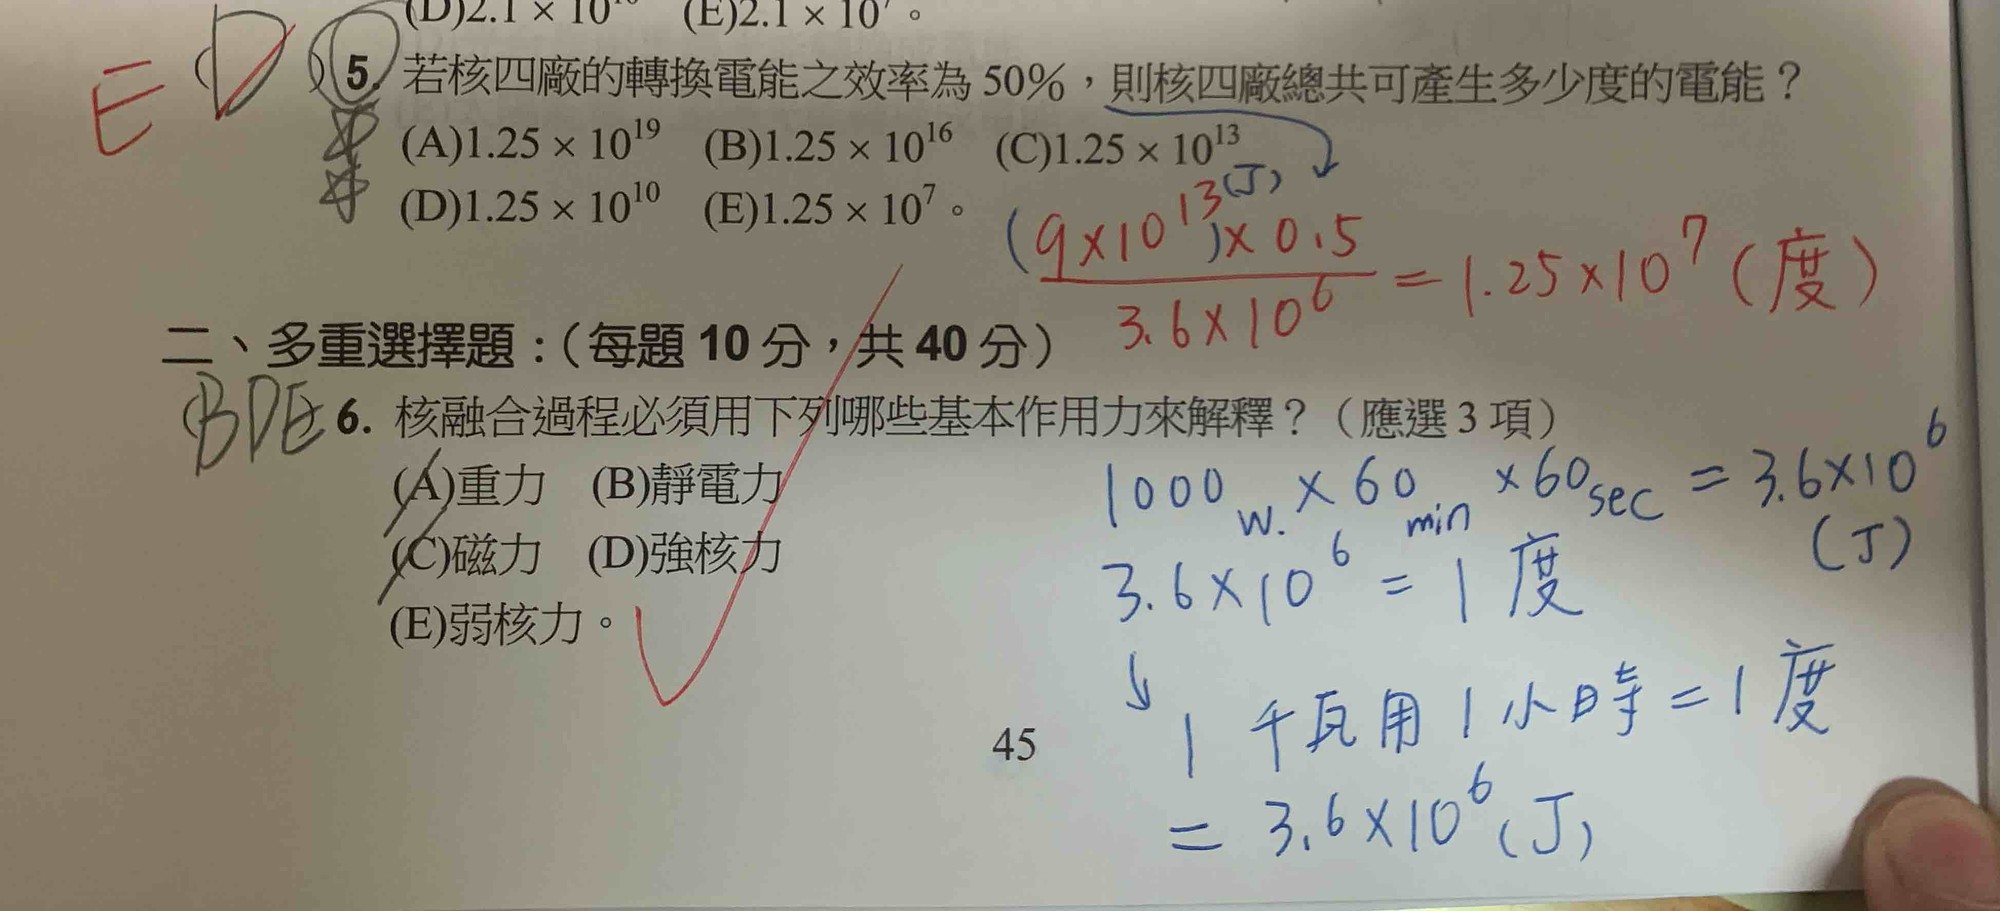 (D)2.1 × 10¹⁰ (E)2.1 × 10⁷。
E D 5. 若核四廠的轉換電能之效率為 50%，則核四廠總共可產生多少度的電能？
(A)1.25 × 10¹⁹ (B)1.25 × 10¹⁶ (C)1.25 × 10¹³
(D)1.25 × 10¹⁰ (E)1.25 × 10⁷。
(9×10¹³(J))×0.5 / 3.6×10⁶ = 1.25×10⁷ (度)
二、多重選擇題：（每題 10 分，共 40 分）
BDE 6. 核融合過程必須用下列哪些基本作用力來解釋？（應選 3 項）
(A)重力 (B)靜電力
(C)磁力 (D)強核力
(E)弱核力。
1000 w. × 60 min × 60 sec = 3.6×10⁶ (J)
3.6×10⁶ = 1 度
↓ 1 千瓦用 1 小時 = 1 度
= 3.6×10⁶ (J)
45